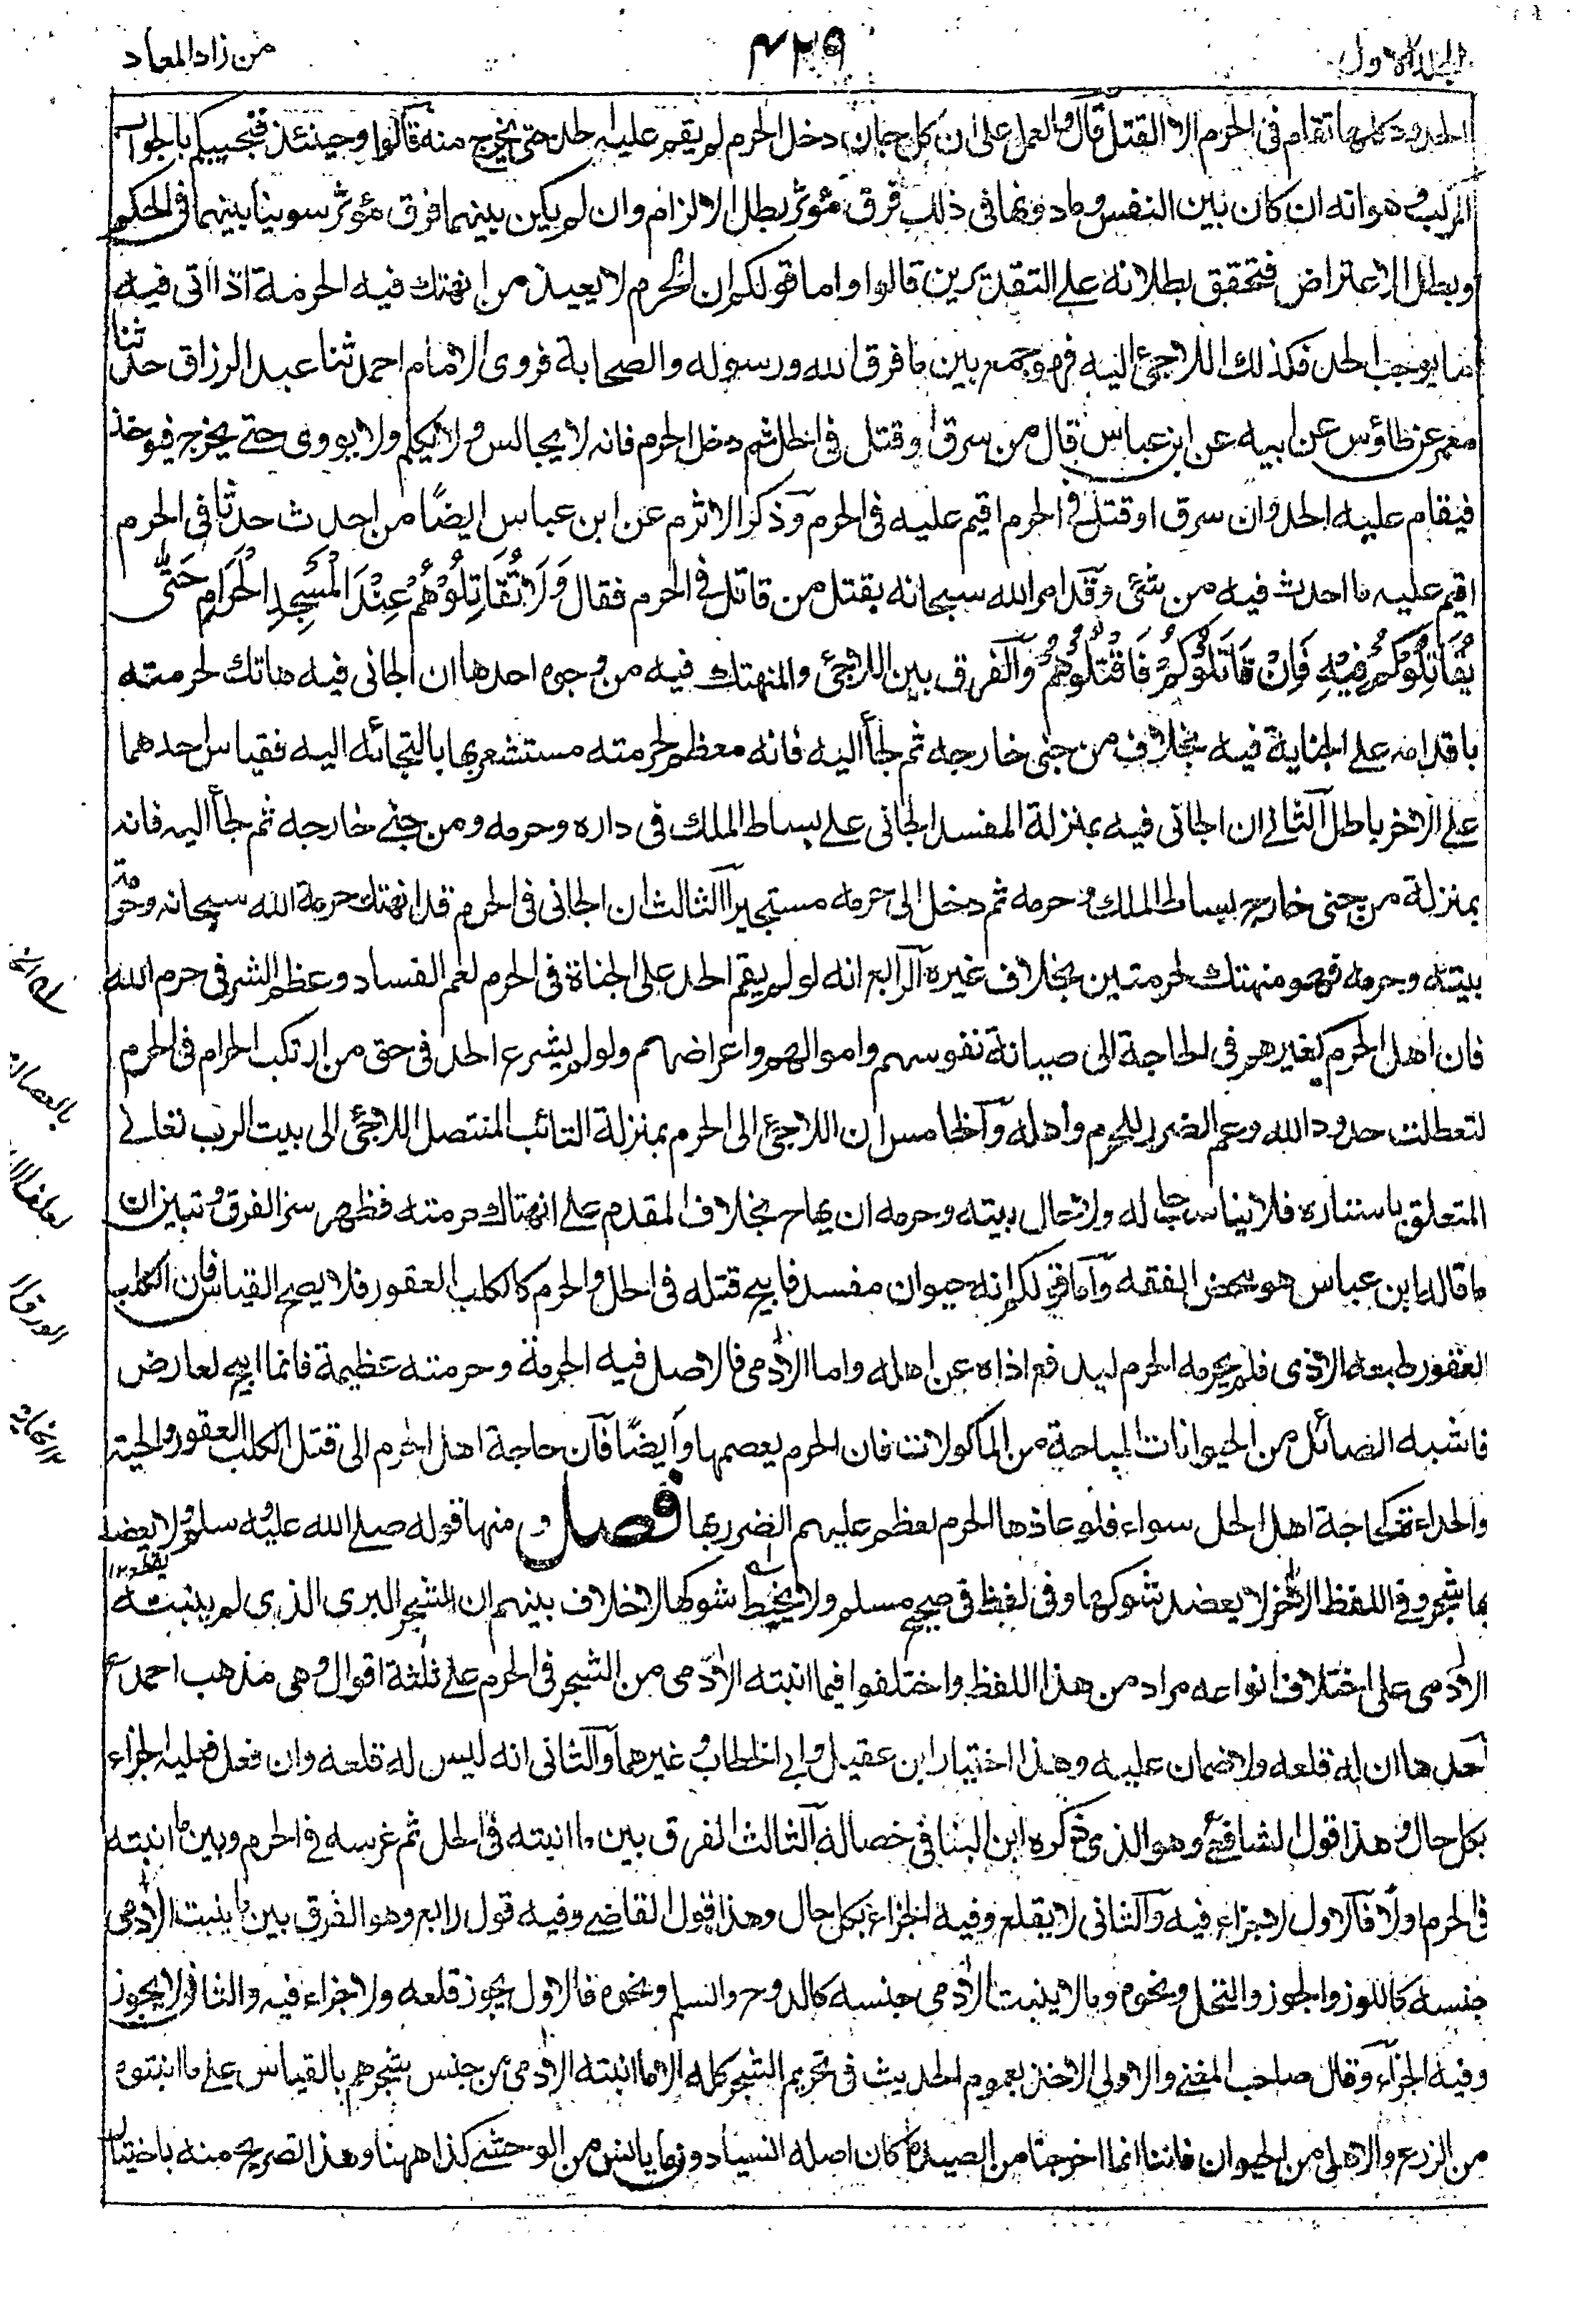 المجلد الاول
٤٢٩
من زاد المعاد
الحدود كلها تقام فى الحرم الا القتل قال والعمل على ان كل جان دخل الحرم لم يقم عليه حد حتى يخرج منه قالوا وحينئذ فنجيبكم بالجواب
المركب وهو انه ان كان بين النفس وما دونها فى ذلك فرق مؤثر بطل الالزام وان لم يكن بينهما فرق مؤثر سوينا بينهما فى الحكم
وبطل الاعتراض فتحقق بطلانه على التقديرين قالوا واما قولكم ان الحرم لا يعيذ من انهتك فيه الحرمة اذا اتى فيه
ما يوجب الحد فكذلك اللاجئ اليه فهو جمع بين ما فرق الله ورسوله والصحابة فروى الامام احمد ثنا عبد الرزاق حدثنا
معمر عن طاؤس عن ابيه عن ابن عباس قال من سرق او قتل فى الحل ثم دخل الحرم فانه لا يجالس ولا يكلم ولا يووى حتى يخرج فيوخذ
فيقام عليه الحد وان سرق او قتل فى الحرم اقيم عليه فى الحرم وذكر الاثرم عن ابن عباس ايضًا من احدث حدثا فى الحرم
اقيم عليه ما احدث فيه من شئ وقد امر الله سبحانه بقتل من قاتل فى الحرم فقال وَلَا تُقَاتِلُوْهُمْ عِنْدَ الْمَسْجِدِ الْحَرَامِ حَتّٰى
يُقَاتِلُوْكُمْ فِيْهِ فَاِنْ قَاتَلُوْكُمْ فَاقْتُلُوْهُمْ وَالفرق بين اللاجئ والمنهتك فيه من وجوه احدها ان الجانى فيه هاتك لحرمته
باقدامه على الجناية فيه بخلاف من جنى خارجه ثم لجأ اليه فانه معظم لحرمته مستشعر بها بالتجائه اليه فقياس احدهما
على الاخر باطل الثانى ان الجانى فيه بمنزلة المفسد الجانى على بساط الملك فى داره وحرمه ومن جنى خارجه ثم لجأ اليه فانه
بمنزلة من جنى خارج بساط الملك وحرمه ثم دخل الى حرمه مستجيرا الثالث ان الجانى فى الحرم قد انهتك حرمة الله سبحانه وحرمة
بيته وحرمه فهو منهتك لحرمتين بخلاف غيره الرابع انه لو لم يقم الحد على الجناة فى الحرم لعم الفساد وعظم الشر فى حرم الله
فان اهل الحرم كغيرهم فى الحاجة الى صيانة نفوسهم واموالهم واعراضهم ولو لم يشرع الحد فى حق من ارتكب الحرام فى الحرم
لتعطلت حدود الله وعم الضرر للحرم واهله والخامس ان اللاجئ الى الحرم بمنزلة التائب المنتصل اللاجئ الى بيت الرب تعالى
المتعلق باستاره فلا يناسب حاله ولا حال بيته وحرمه ان يهاج بخلاف المقدم على انهتاك حرمته فظهر سر الفرق وتبين ان
ما قاله ابن عباس هو محض الفقه واما قولكم انه حيوان مفسد فابيح قتله فى الحل والحرم كالكلب العقور فلا يصح القياس فان الكلب
العقور طبعه الاذى فلم يحرمه الحرم ليدفع اذاه عن اهله واما الآدمى فالاصل فيه الحرمة وحرمته عظيمة فانما ابيح لعارض
فاشبه الصائل من الحيوانات المباحة من الماكولات فان الحرم يعصمها وايضًا فان حاجة اهل الحرم الى قتل الكلب العقور والحية
والحداءة كحاجة اهل الحل سواء فلو عاذها الحرم لعظم عليهم الضرر بها فصل ومنها قوله صلى الله عليه وسلم ولا يعضد
يقطع ١٢
بها شجر وفى اللفظ الاخر لا يعضد شوكها وفى لفظ فى صحيح مسلم ولا يخبط شوكها لا خلاف بينهم ان الشجر البرى الذى لم ينبته
الآدمى على اختلاف انواعه مراد من هذا اللفظ واختلفوا فيما انبته الآدمى من الشجر فى الحرم على ثلثة اقوال وهى مذهب احمد
احدها ان له قلعه ولا ضمان عليه وهذا اختيار ابن عقيل وابى الخطاب وغيرهما والثانى انه ليس له قلعه وان فعل فعليه الجزاء
بكل حال وهذا قول الشافعى وهو الذى ذكره ابن البنا فى خصاله الثالث الفرق بين ما انبته فى الحل ثم غرسه فى الحرم وبين ما انبته
فى الحرم اولا فالاول لا جزاء فيه والثانى لا يقلع وفيه الجزاء بكل حال وهذا قول القاضى وفيه قول رابع وهو الفرق بين ما ينبت الآدمى
جنسه كاللوز والجوز والنخل ونحوه وما لا ينبت الآدمى جنسه كالدوح والسلم ونحوه فالاول يجوز قلعه ولا جزاء فيه والثانى لا يجوز
وفيه الجزاء وقال صاحب المغنى والاولى الاخذ بعموم الحديث فى تحريم الشجر كله الا ما انبته الآدمى من جنس شجرهم بالقياس على ما انبتوه
من الزرع والاهلى من الحيوان فاننا انما اخرجنا من الصيد ما كان اصله انسيا دون ما يانس من الوحشى كذا ههنا وهذا تصريح منه باختيار